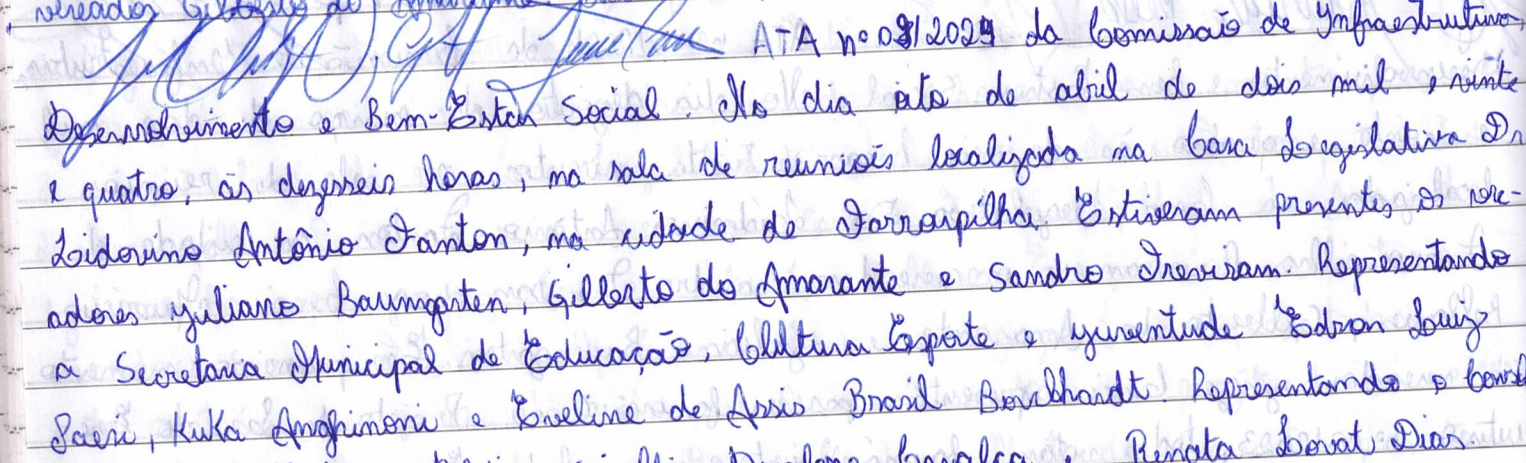 vereador Gilberto do Amarante
ATA nº 08/2024 da Comissão de Infraestrutura,
Desenvolvimento e Bem-Estar Social. No dia oito de abril de dois mil e vinte
e quatro, às dezesseis horas, na sala de reuniões localizada na Casa Legislativa Dr
Lidovino Antônio Fanton, na cidade de Farroupilha. Estiveram presentes os vere-
adores Juliano Baumgarten, Gilberto do Amarante e Sandro Trevisan. Representando
a Secretaria Municipal de Educação, Cultura Esporte e Juventude Edson Luiz
Paesi, Kuka Anghinoni e Eveline de Assis Brasil Bourkhardt. Representando o
Renata Lovat Dias